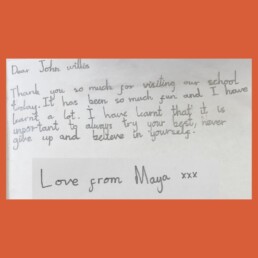 Dear John willis
Thank you so much for visiting our school
today. It has been so much fun and I have
learnt a lot. I have learnt that it is
important to always try your best, never
give up and believe in yourself.
Love from Maya xxx